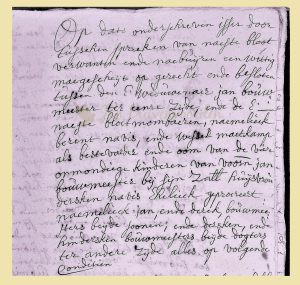 Op dato onderschreven isser door
tusschen spreken van naeste bloet
verwanten ende naebuijren een
maegescheijt op gerecht ende besloten
tussen den Weduwenaer jan bouw
meester ter eenre Zijde, ende de
naeste bloetmombaeren, naementlick
berent navis, ende Wessel
als bestevader ende oom van de vier
onmondige kinderen van voorn jan
bouwmeester bij sijn Zall:
dersken navis Ehelick geprocreert
naementlick jan, ende derck, bouwmee
sters beijde soonen, ende dersken, ende
hindersken bouwmeesters beijde dogters
ter andere Zijde alles op volgende
Conditien